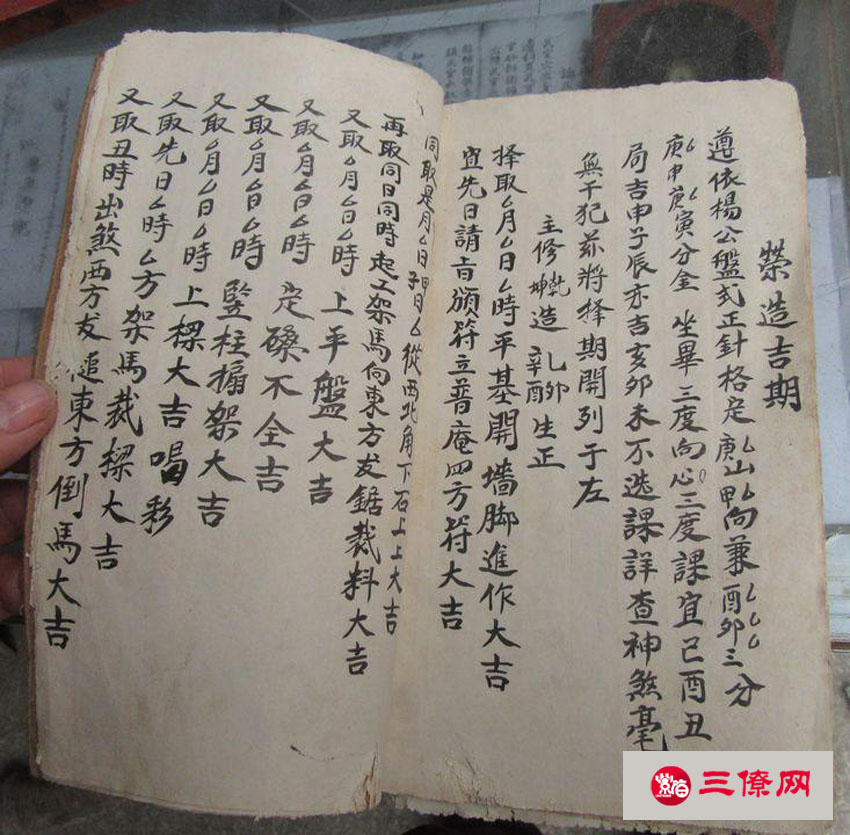 榮造吉期
遵依楊公盤式正針格定庚山甲向兼酉卯三分
庚申庚寅分金坐畢三度向心三度課宜巳酉丑
局吉申子辰亦吉亥卯未不选課詳查神煞毫
無干犯茲將择期開列于左
主修乾坤造乙卯辛酉生正
择取厶月厶日厶時平基開墙脚進作大吉
宜先日請旨頒符立普庵四方符大吉
同取是月厶日甲子日厶從西北角下石上上大吉
再取同日同時起工架馬向東方友鋸裁料大吉
又取厶月厶日厶時上平盤大吉
又取厶月厶日厶時定磉不全吉
又取厶月厶日厶時竪柱搧架大吉
又取厶月厶日厶時上樑大吉喝彩
又取先日厶時厶方架馬裁樑大吉
又取丑時出煞西方友槌東方倒馬大吉
三僚网